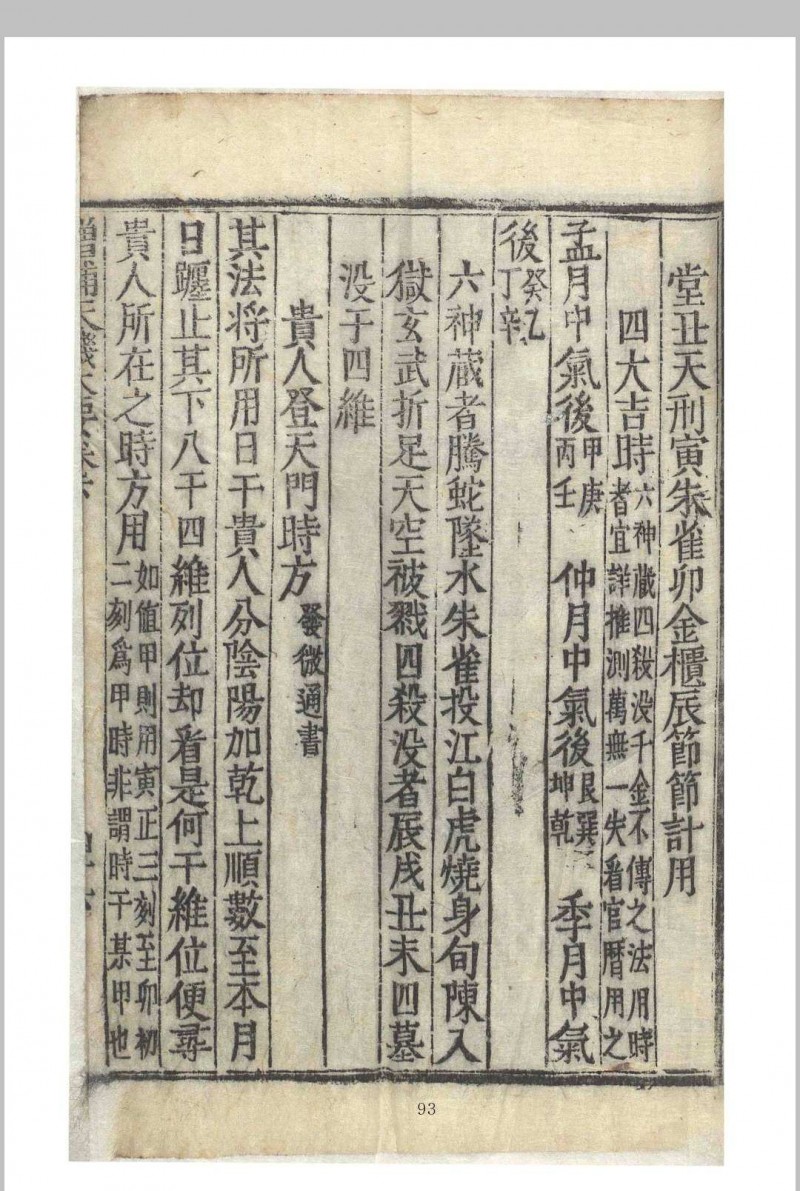 堂丑天刑寅朱雀卯金櫃辰節節計用
四大吉時
六神藏四殺没千金不傳之法用時
者宜詳推測萬無一失看官曆用之
孟月中氣後
甲庚
丙壬
仲月中氣後
艮巽
坤乾
季月中氣
後
癸乙
丁辛
六神藏者騰蛇墜水朱雀投江白虎燒身句陳入
獄玄武折足天空被戮四殺没者辰戌丑未四墓
没于四維
貴人登天門時方
發微通書
其法将所用日干貴人分陰陽加乾上順數至本月
日躔止其下八干四維列位却看是何干維位便尋
貴人所在之時方用
如值甲則用寅正三刻至卯初
二刻爲甲時非謂時干某甲也
增補天機大要
93